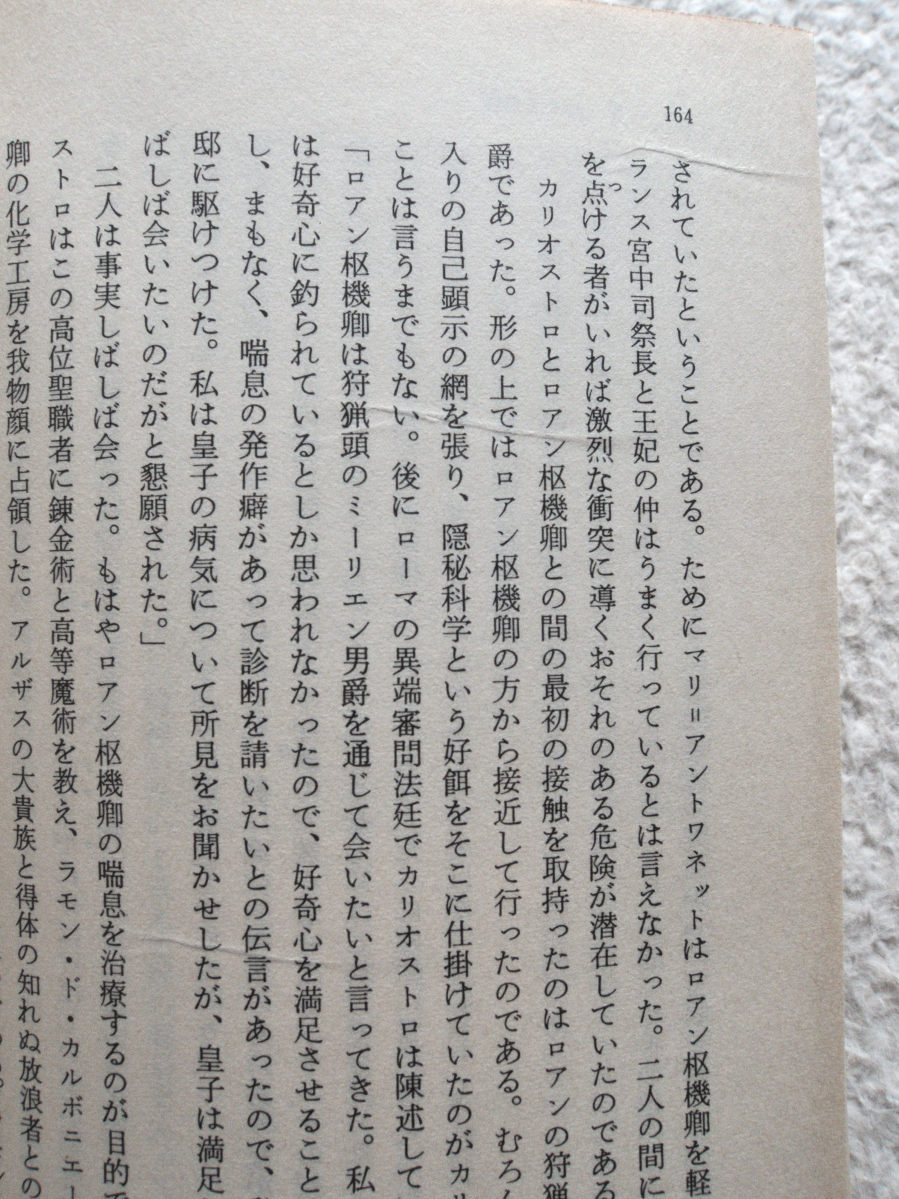 164
されていたということである。ためにマリ＝アントワネットはロアン枢機卿を軽
ランス宮中司祭長と王妃の仲はうまく行っているとは言えなかった。二人の間に
を点ける者がいれば激烈な衝突に導くおそれのある危険が潜在していたのである
カリオストロとロアン枢機卿との間の最初の接触を取持ったのはロアンの狩猟
爵であった。形の上ではロアン枢機卿の方から接近して行ったのである。むろん
入りの自己顕示の網を張り、隠秘科学という好餌をそこに仕掛けていたのがカリ
ことは言うまでもない。後にローマの異端審問法廷でカリオストロは陳述して
「ロアン枢機卿は狩猟頭のミーリエン男爵を通じて会いたいと言ってきた。私
は好奇心に釣られているとしか思われなかったので、好奇心を満足させること
し、まもなく、喘息の発作癖があって診断を請いたいとの伝言があったので、
邸に駆けつけた。私は皇子の病気について所見をお聞かせしたが、皇子は満足
ばしば会いたいのだがと懇願された。」
二人は事実しばしば会った。もはやロアン枢機卿の喘息を治療するのが目的で
ストロはこの高位聖職者に錬金術と高等魔術を教え、ラモン・ド・カルボニエー
卿の化学工房を我物顔に占領した。アルザスの大貴族と得体の知れぬ放浪者との